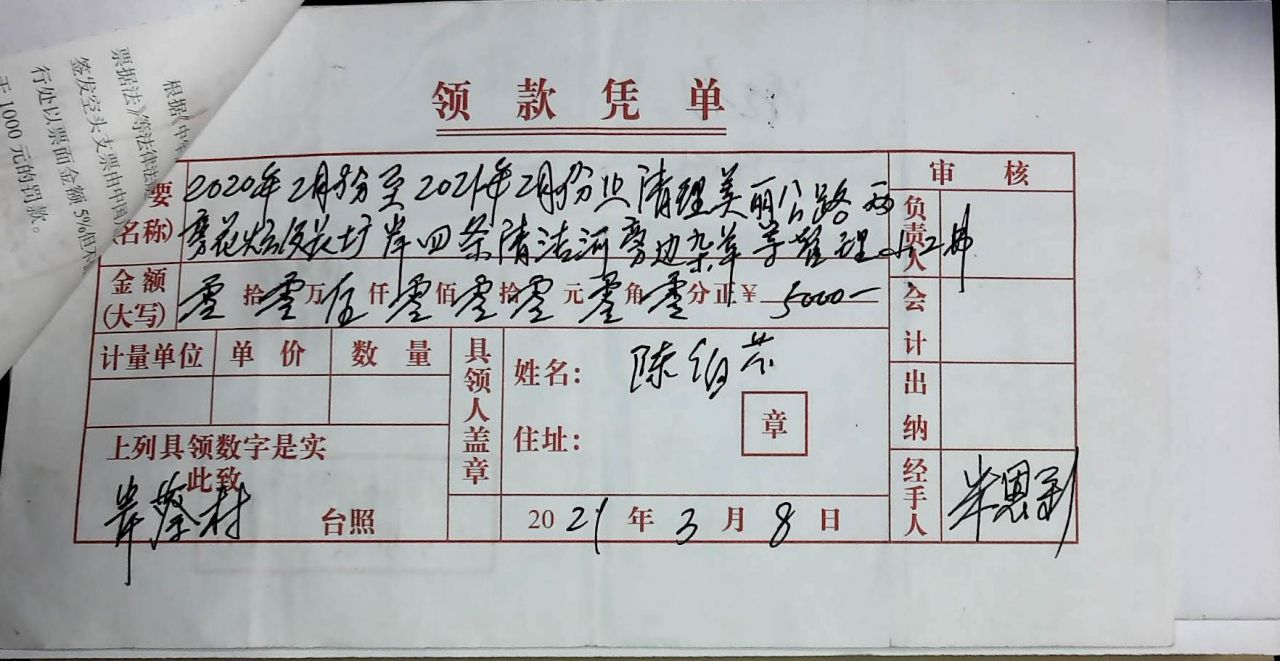 根据《中
票据法》等法律法
签发空头支票由中国
行处以票面金额5%但不
于1000元的罚款。
领款凭单
要
(名称)
2020年2月份至2021年2月份止清理美丽公路两
旁花 岸四条清洁河旁边杂草等管理。
审核
负责人
金额
(大写)
零拾零万伍仟零佰零拾零元零角零分正¥ 5000-
会计
计量单位 单价 数量
具领人盖章
姓名: 陈伯
住址:
章
出纳
上列具领数字是实
此致
岸 村 台照
2021年3月8日
经手人
恩